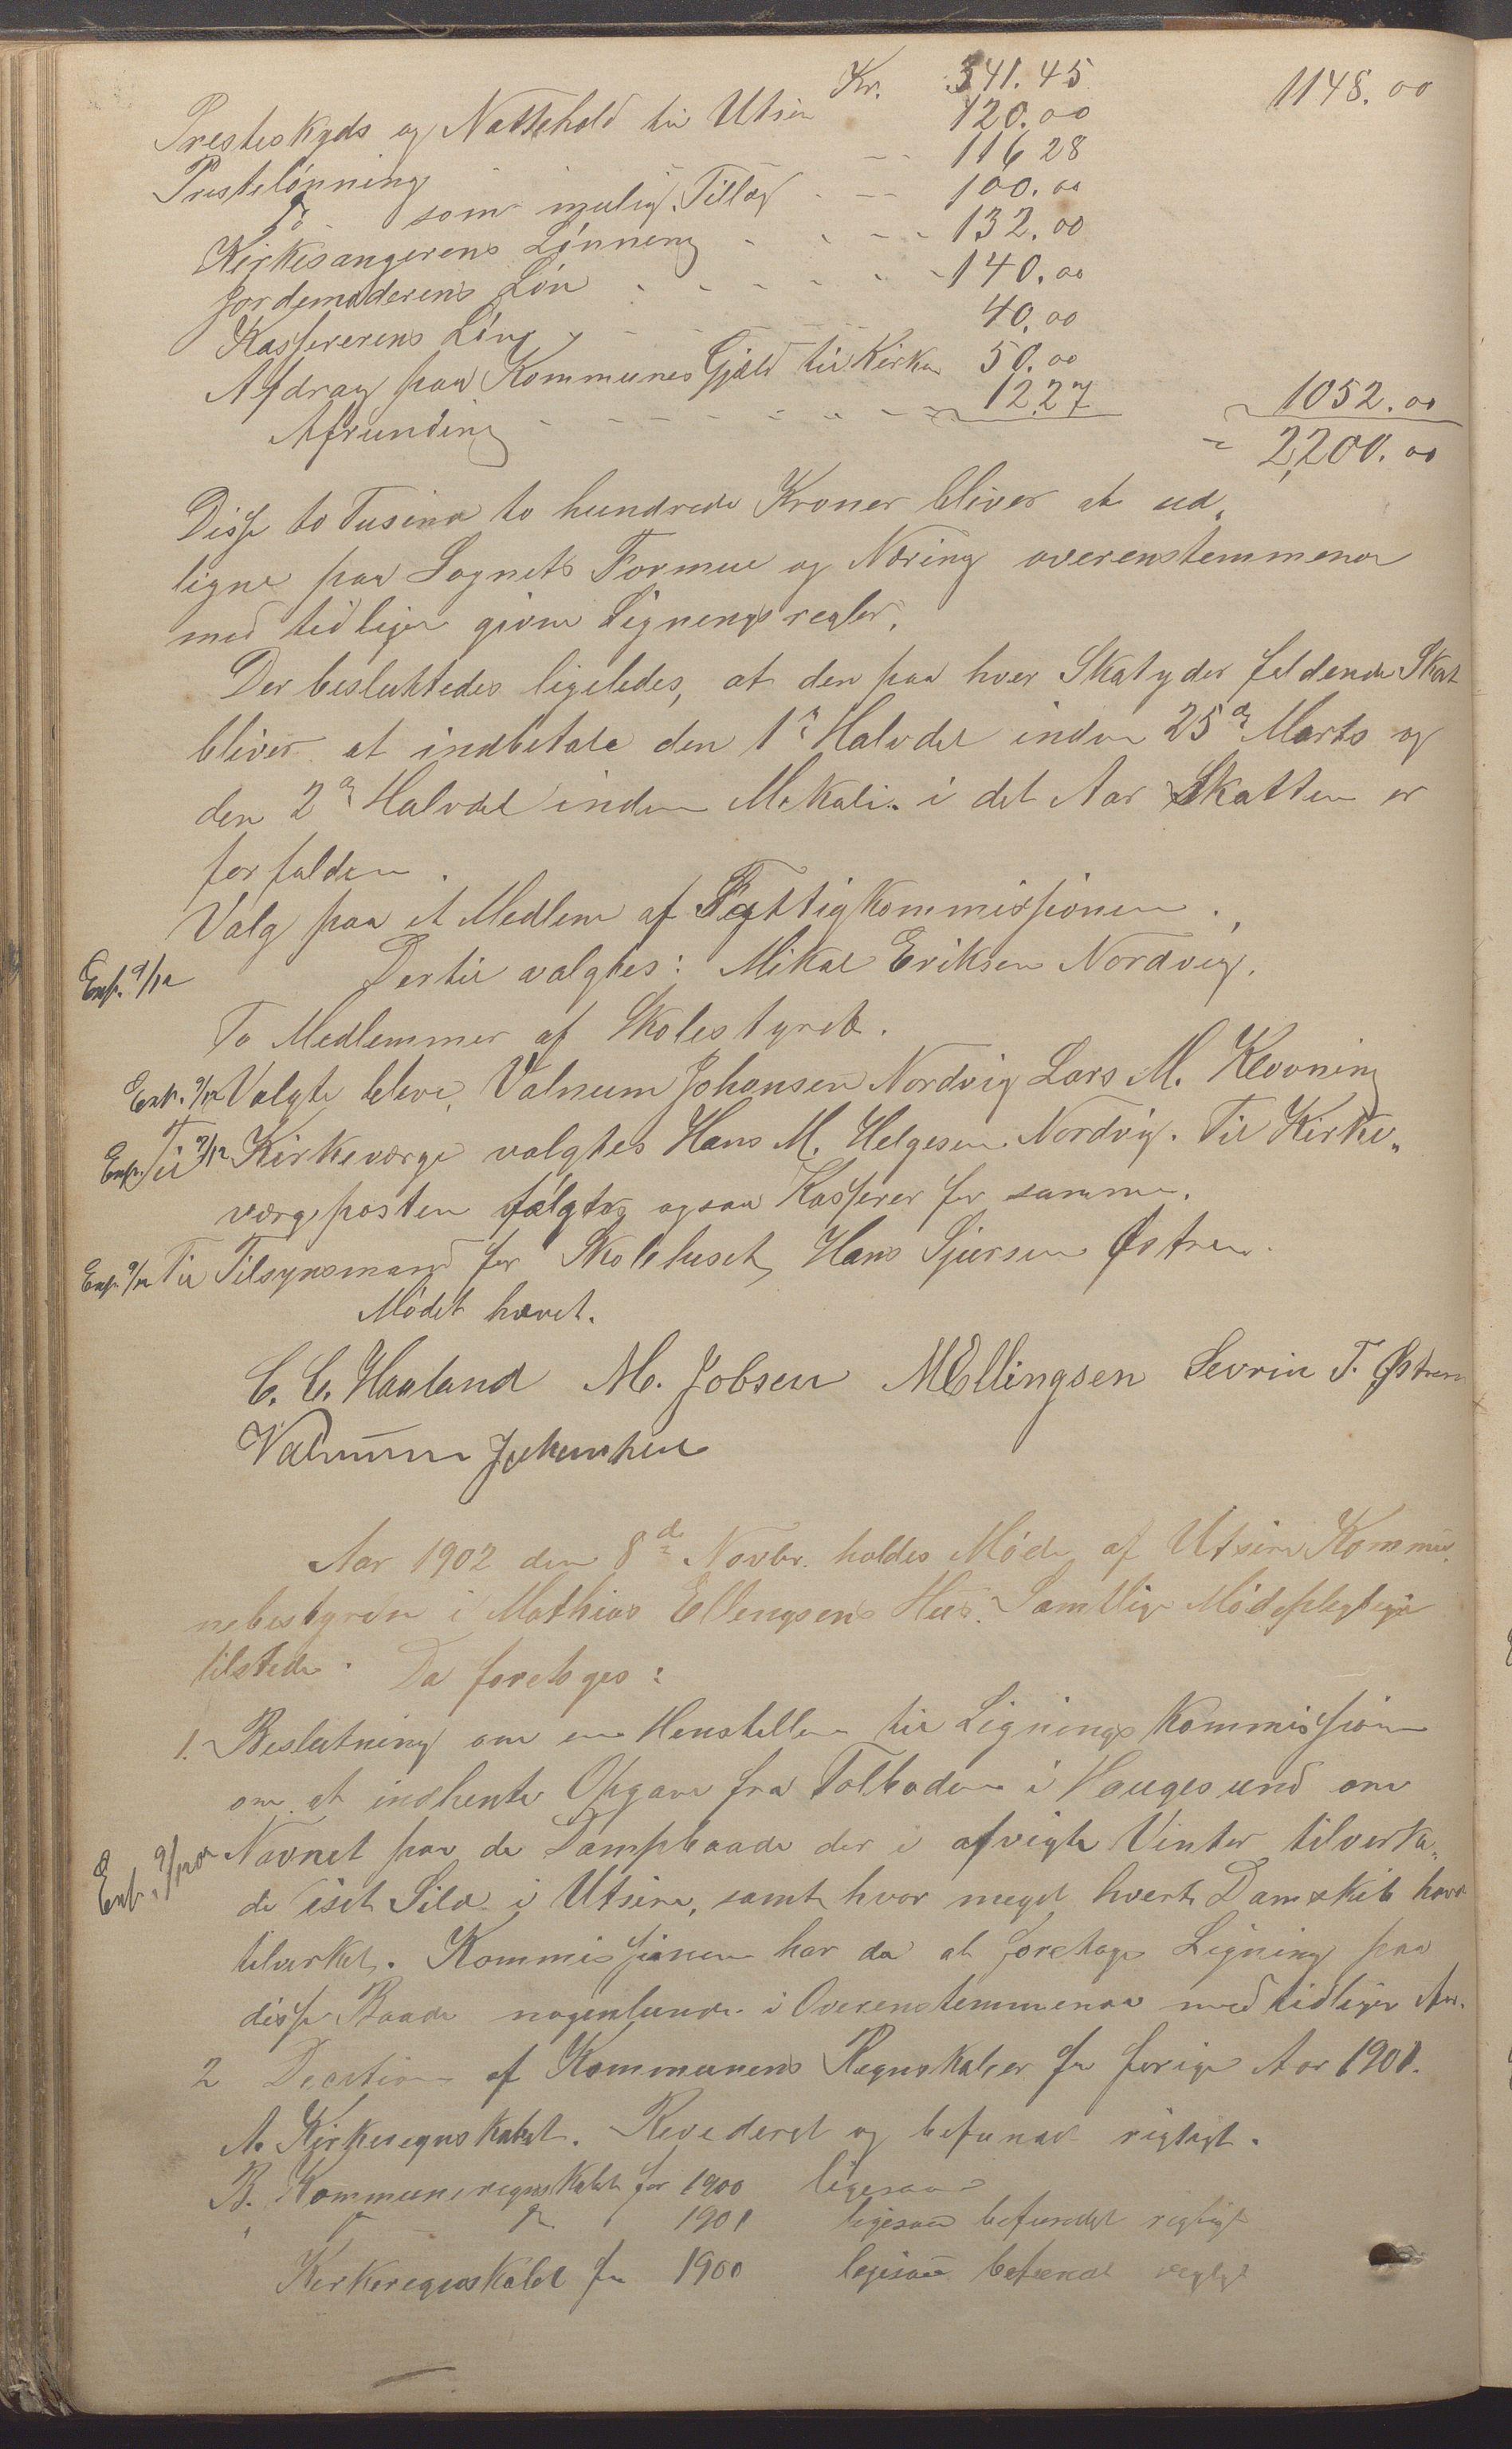 Kr. 341.45 1148.00
Presteskyds og Nattehold til Utsire 120.00
Prestelønning - - 116 28
Do som mulig Tillæg - - 100.00
Kirkesangerens Lønning - - - - 132.00
Jordemoderens Løn - - - - - - 140.00
Kassererens Løn - - - - 40.00
Afdrag paa Kommunens Gjæld til Kirken 50.00
Afrunding - - - - - - 12.27 1052.00
2,200.00
Disse to Tusind to hundrede Kroner bliver at ud-
ligne paa Sognets Formue og Næring overenstemmende
med tidligere givne Ligningsregler.
Der besluttedes ligeledes, at den paa hver Skatyder faldende Skat
bliver at indbetale den 1ste Halvdel inden 25de Marts og
den 2den Halvdel inden Mikali i det Aar Skatten er
forfalden.
Valg paa et Medlem af Fattigkommissionen.
Exp. 9/12 Dertil valgtes: Mikal Eriksen Nordvig.
To Medlemmer af Skolestyret.
Exp. 9/12 Valgte bleve, Valnum Johansen Nordvig Lars M. Klovning
Exp. 9/12 Til Kirkeværge valgtes Hans M. Helgesen Nordvig. Til Kirke-
værgeposten følgtes ogsaa Kasserer for samme.
Exp. 9/12 Til Tilsynsmand for Skolehuset, Hans Sjursen Østrem.
Mødet hævet.
C. C. Haaland M. Jobsen MEllingsen Sevrin T. Østrem
Valnum Johansen
Aar 1902 den 8de Novbr. holdes Møde af Utsire Kommu-
nebestyrelse i Mathias Ellingsens Hus. Samtlige Mødepligtige
tilstede. Da foretoges:
1. Beslutning om en Henstillen til Ligningskommissionen
om at indhente Opgave fra Tolboden i Haugesund om
Exp. 9/12 02 Navnet paa de Dampbaade der i afvigte Vinter tilverka-
de iset Sild i Utsire, samt hvor meget hvert Damskib havde
tilvirket. Kommissionen har da at foretage Ligning paa
disse Baade nogenlunde i Overenstemmende med tidligere Aar.
2 Decition af Kommunens Regnskaber for forige Aar 1901.
A. Kirkeregnskabet. Revederet og befunnet rigtigt.
B. Kommuneregnskabet for 1900 ligesaa
" " 1901 ligesaa befundet rigtigt
Kirkeregnskabet for 1900 ligesaa befundet rigtigt